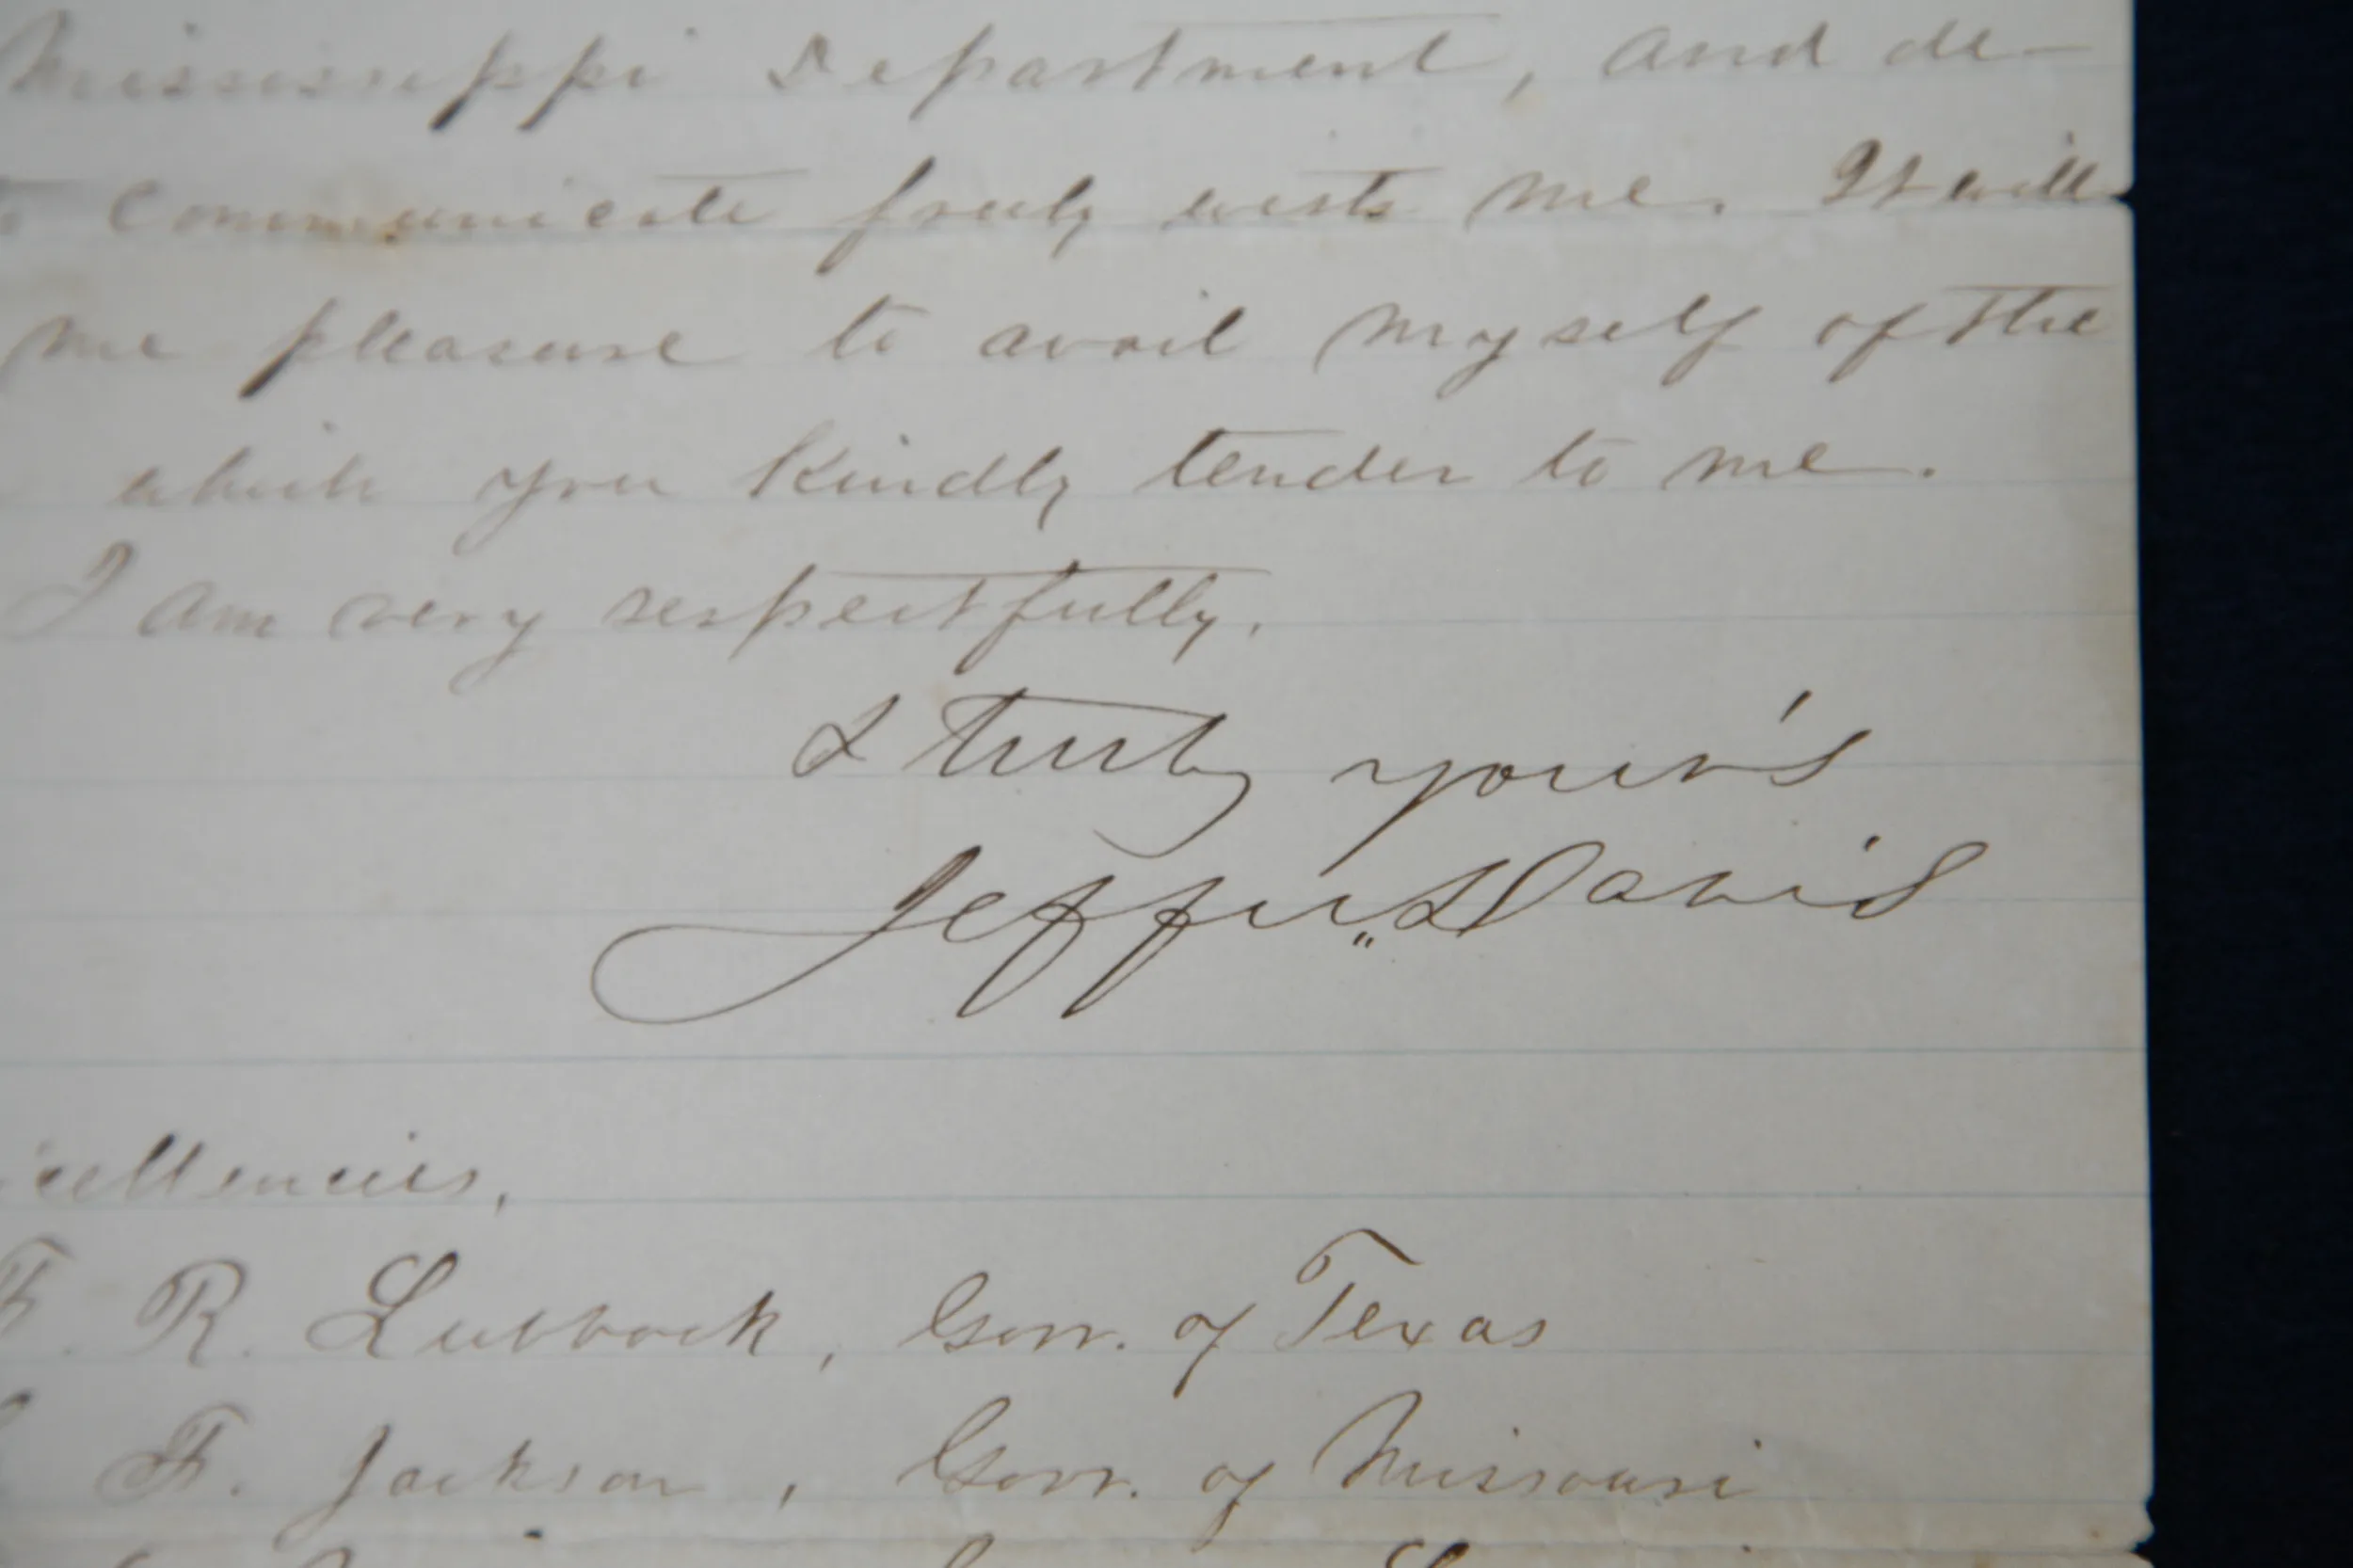 Mississippi Department, and de-
communicate freely with me. It will
me pleasure to avail myself of the
which you kindly tender to me.
I am very respectfully,
& truly your's
Jeffn. Davis
cellencies,
F. R. Lubbock, Gov. of Texas
F. Jackson, Gov. of Missouri